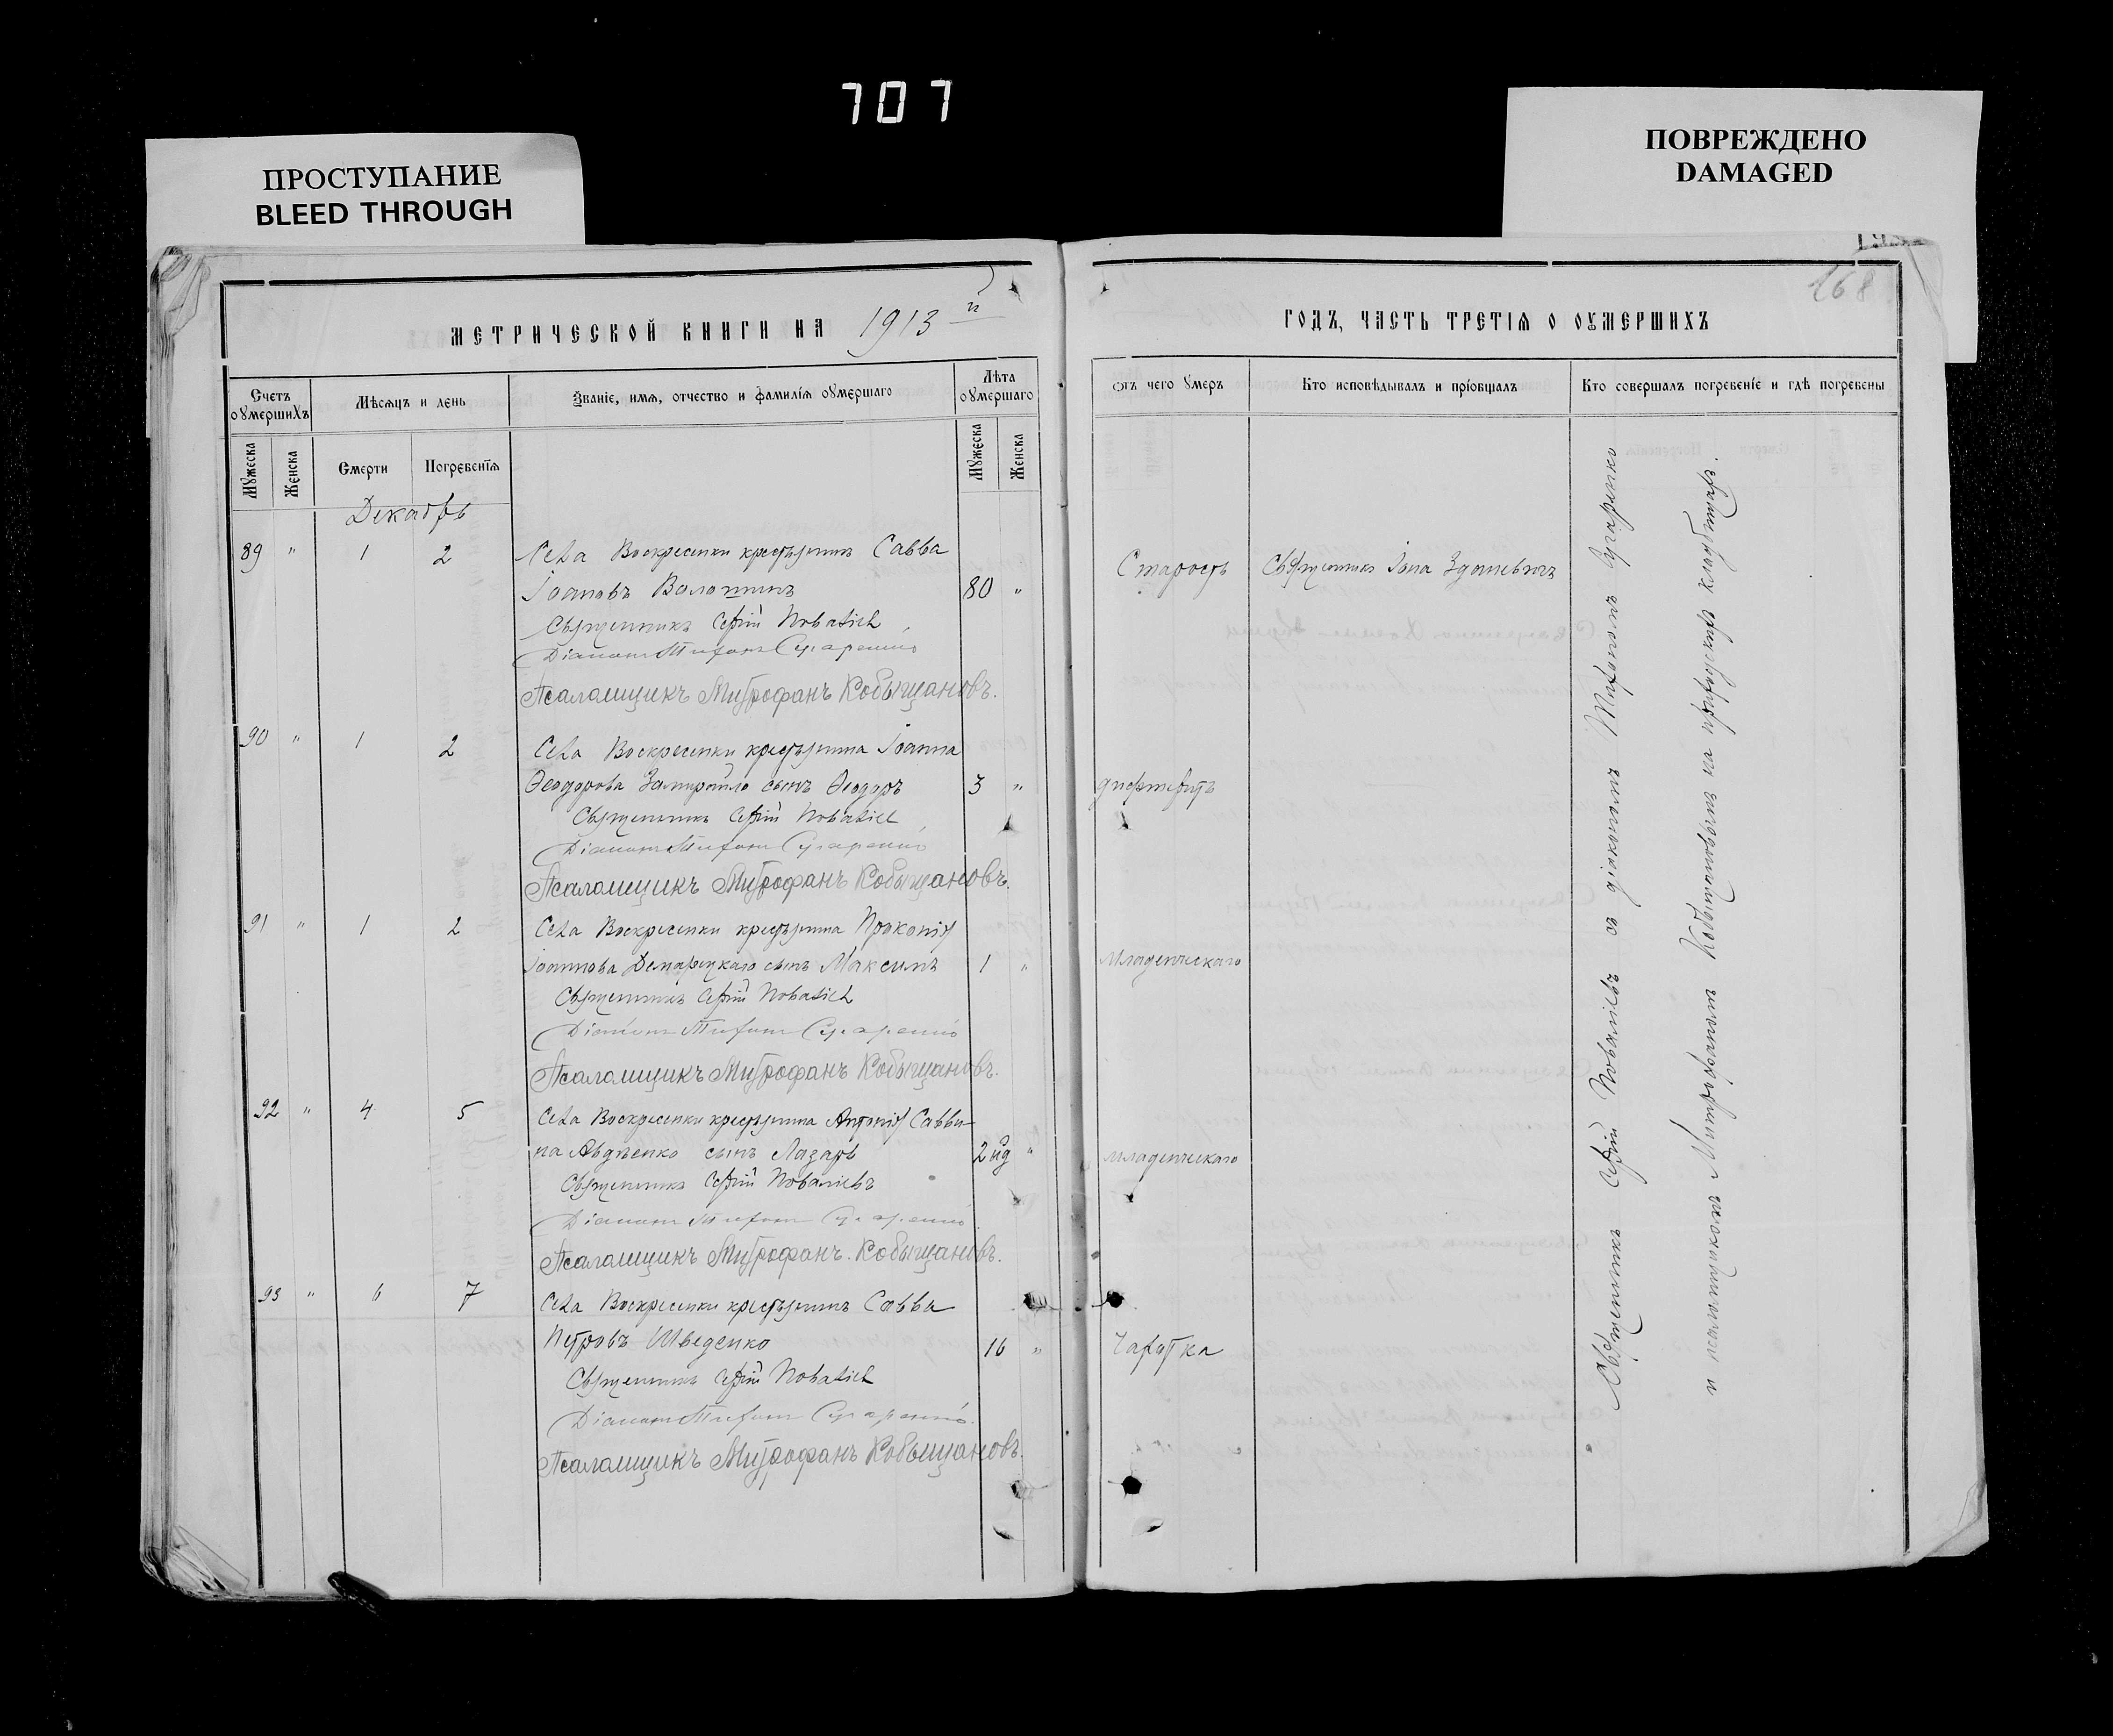 707
ПРОСТУПАНИЕ
BLEED THROUGH
ПОВРЕЖДЕНО
DAMAGED
168
МЕТРИЧЕСКОЙ КНИГИ НА 1913 й
ГОДЪ, ЧАСТЬ ТРЕТІЯ О ОУМЕРШИХЪ
Счетъ оумершихъ
Мѣсяцъ и день
Званіе, имя, отчество и фамилія оумершаго
Лѣта оумершаго
Отъ чего умеръ
Кто исповѣдывалъ и пріобщалъ
Кто совершалъ погребеніе и гдѣ погребены
Мужеска
Женска
Смерти
Погребенія
Мужеска
Женска
Декабрь
89 " 1 2 Села Воскресенки крестьянинъ Савва
Іоановъ Волошинъ 80 " Старость
Священникъ Сергій
Діаконъ Тихонъ
Псаломщикъ Митрофанъ Кобыщановъ.
90 " 1 2 Села Воскресенки крестьянина Іоанна
Ѳеодорова сынъ Ѳеодоръ 3 " дифтеритъ
Священникъ Сергій
Діаконъ Тихонъ
Псаломщикъ Митрофанъ Кобыщановъ.
91 " 1 2 Села Воскресенки крестьянина Прокопія
Іоаннова сынъ Максимъ 1 " Младенческаго
Священникъ Сергій
Діаконъ Тихонъ
Псаломщикъ Митрофанъ Кобыщановъ.
92 " 4 5 Села Воскресенки крестьянина Антонія Савви-
на Авдѣенко сынъ Лазарь 2 нд " младенческаго
Священникъ Сергій
Діаконъ Тихонъ
Псаломщикъ Митрофанъ Кобыщановъ.
93 " 6 7 Села Воскресенки крестьянинъ Савва
Петровъ Шведенко 16 " Чахотка
Священникъ Сергій
Діаконъ Тихонъ
Псаломщикъ Митрофанъ Кобыщановъ.
Священникъ Іона
Священникъ Сергій съ діакономъ Тихономъ
и псаломщикомъ Митрофаномъ Кобыщановымъ на приходскомъ кладбищѣ.